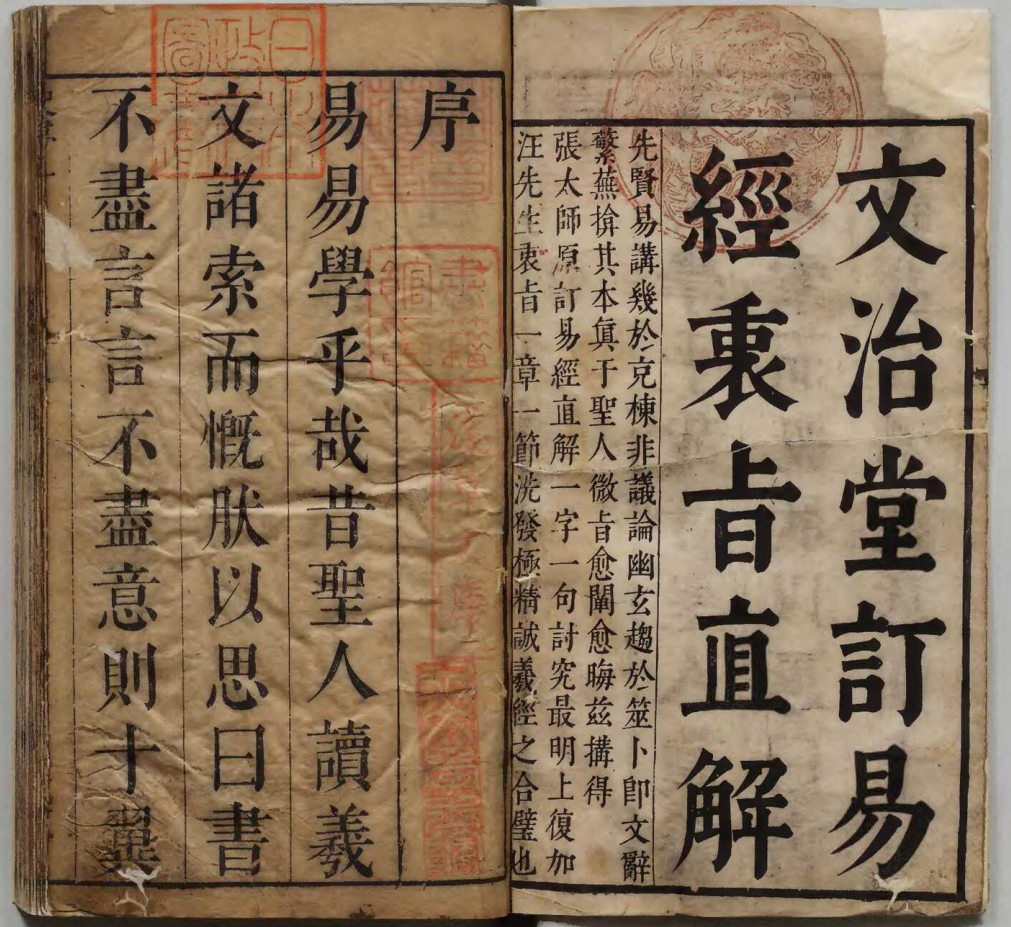 文治堂訂易
經衷旨直解
先賢易講幾於克棟非議論幽玄趨於筮卜卽文辭
蘩蕪揜其本眞于聖人微旨愈闡愈晦茲搆得
張太師原訂易經直解一字一句討究最明上復加
汪先生衷旨一章一節洗發極精誠羲經之合璧也
序
易易學乎哉昔聖人讀羲
文諸索而慨肰以思曰書
不盡言言不盡意則十翼